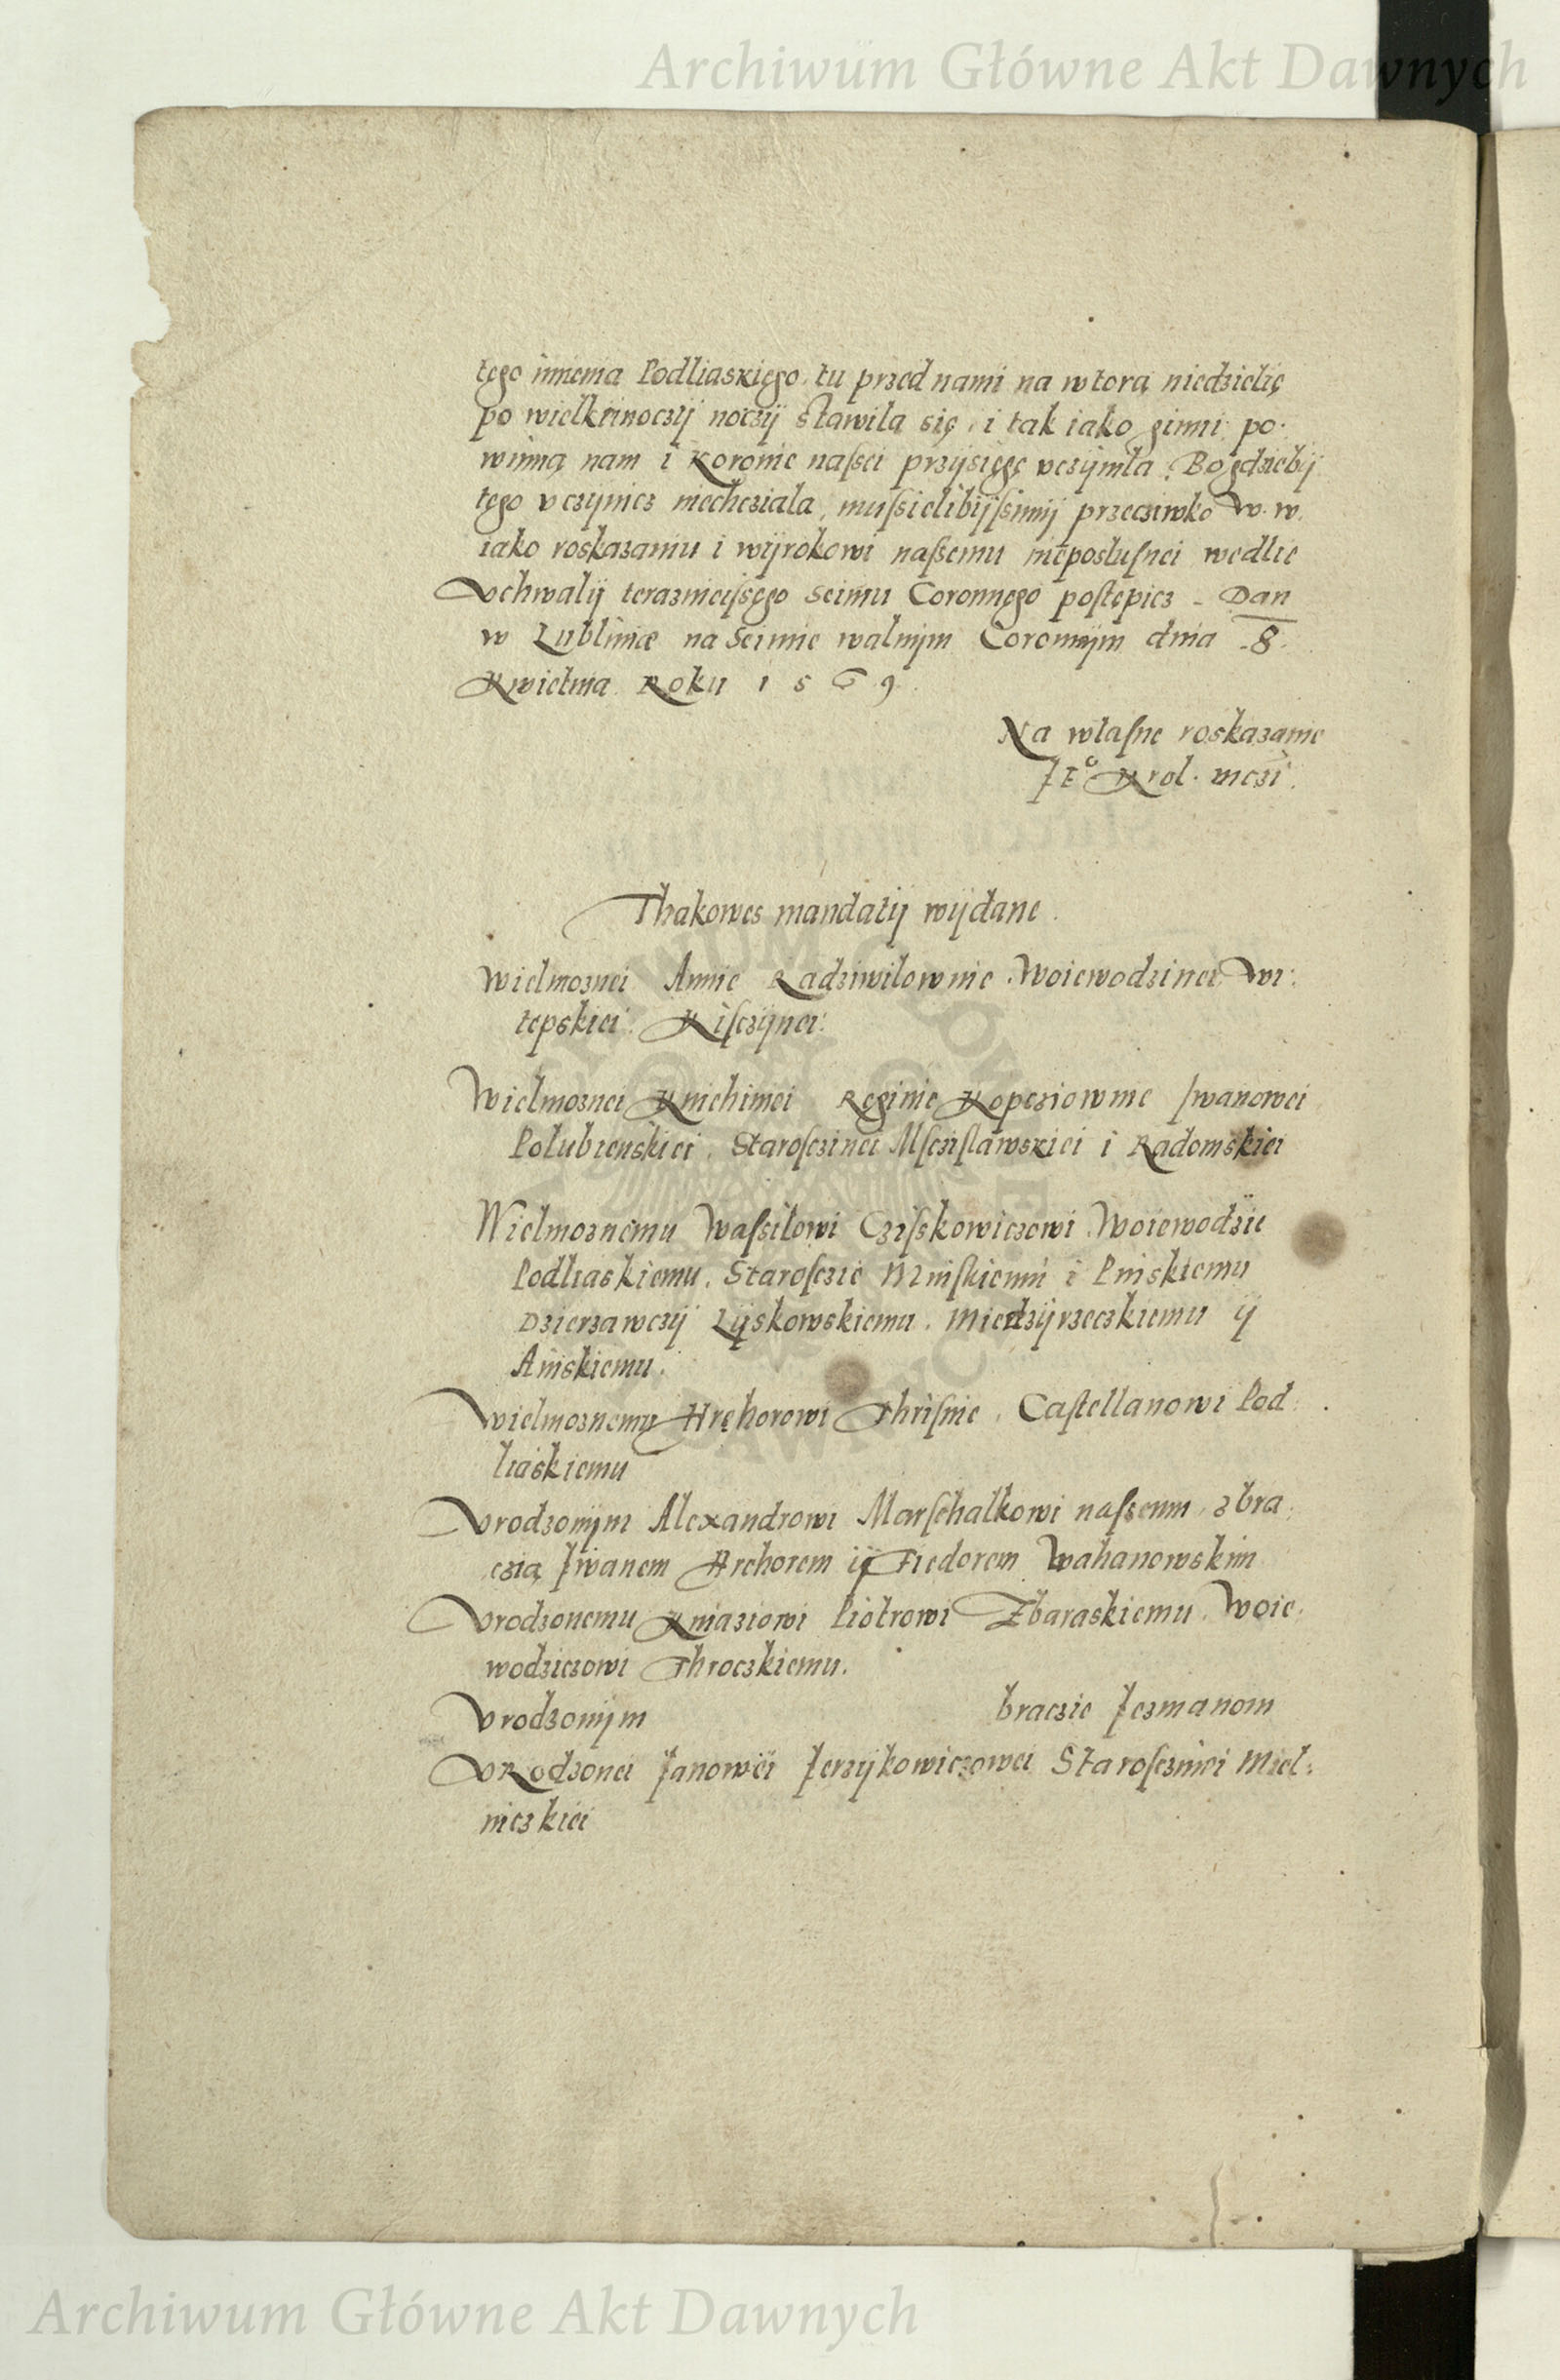 Archiwum Główne Akt Dawnych
tego imienia Podliaskiego tu przed nami na wtorą niedzielię
po wielkiinoczÿ noczÿ stawila się, i tak iako ginni po-
winną nam i Koronie naſsei przÿsięgę vczÿnila. Bo gdziebÿ
tego vczÿnicz niechcziala, muſsielibÿſsimÿ przecziwko W. W.
iako roskazaniu i wÿrokowi naſsemu nieposluſnei wedlie
Vchwalÿ teraznieiſsęgo Seimu Coronnęgo poſtępicz – Dan
w Lublinie na Seimie walnÿm Coronnÿm dnia .8.
Kwietnia Roku 1569.
Na wlaſne roskazanie
JEº Krol. mczi.
Thakowes mandatÿ wÿdane.
Wielmoznei Annie Radziwilownie Woiewodzinei Wi:
tepskiei Kiſczÿnei:
Wielmoznei Kniehinei Reginie Kopcziownie Iwanowei
Polubienskiei, Staroſczinei Mſcziſlawskiei i Radomskiei
Wielmoznemu Waſsilowi Cziſskowiczowi Woiewodzie
Podliaskiemu, Staroſczie Minſkiemu i Pinskiemu
Dzierzawczÿ Lÿskowskiemu, Miedzÿrzeczkiemu ÿ
Ainskiemu.
Wielmoznemu Hręhorowi Thriſnie, Caſtellanowi Pod:
liaskiemu
Vrodzonÿm Alexandrowi Marſchalkowi naſsemu, z bra:
czią Iwanem Hrehorem ÿ Fiedorem Wahanowskim
Vrodzonemu Kniaziowi Piotrowi Zbaraskiemu, Woie:
wodziczowi Throczkiemu.
Vrodzonÿm braczie Jezmanom
VRodzonei Janowei Jerzÿkowiczowei Staroſczinei Miel:
niczkiei
Archiwum Główne Akt Dawnych